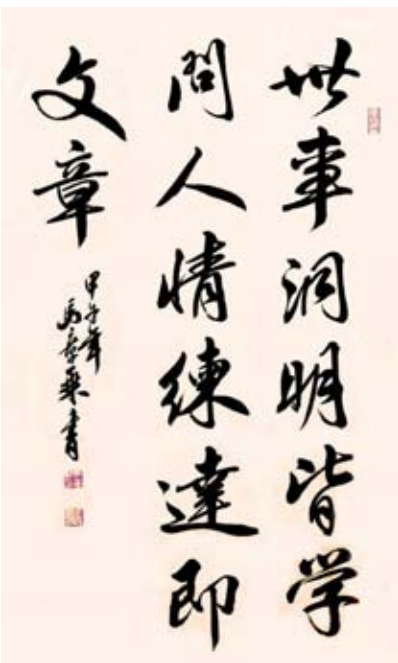 世事洞明皆学
問人情練達即
文章
甲午年
馬奉乘書